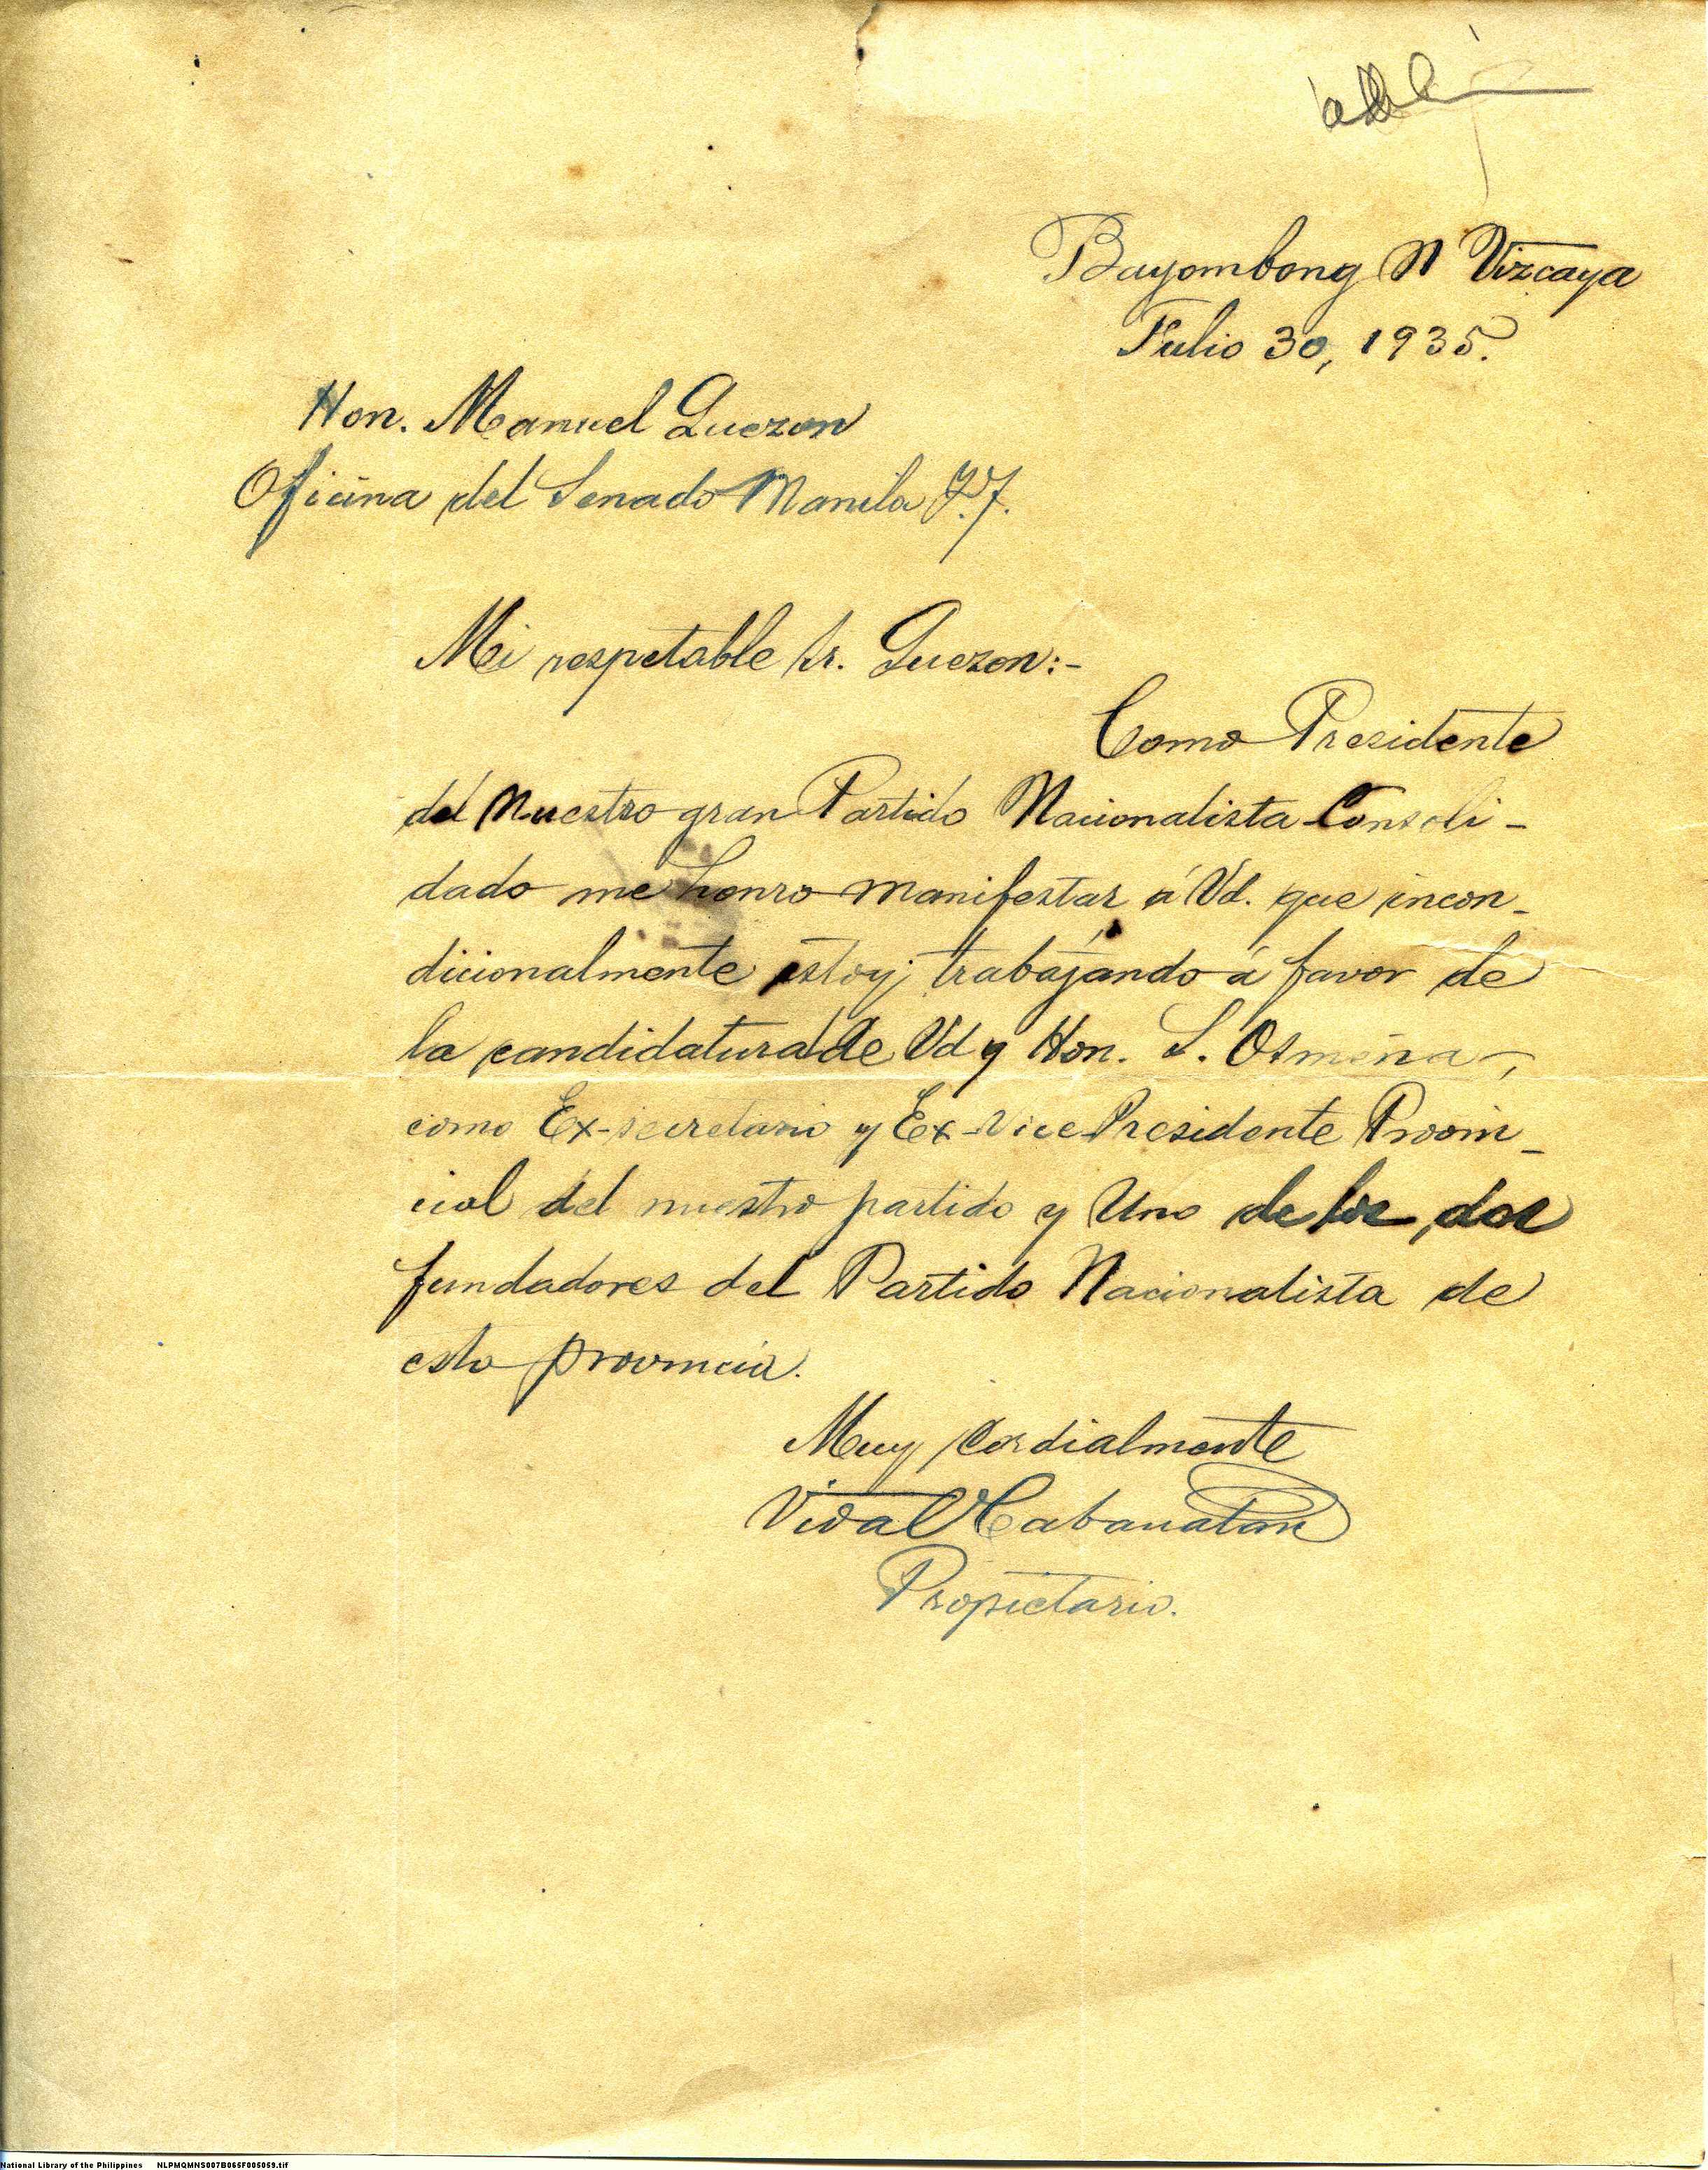 Bayombong N Vizcaya
Julio 30, 1935.
Hon. Manuel Quezon
Oficina del Senado Manila I.F.
Mi respetable Sr. Quezon:-
Como Presidente
del Nuestro gran Partido Nacionalista Consoli-
dado me honro manifestar á Vd. que incon-
dicionalmente estoy trabajando á favor de
la candidatura de Vd y Hon. S. Osmeña,
como Ex-secretario y Ex-Vice Presidente Provin-
cial del nuestro partido y Uno de los dos
fundadores del Partido Nacionalista de
esta provincia.
Muy Cordialmente
Vidal Cabauatan
Propietario.
National Library of the Philippines NLPMQMNS007B066F005059.tif